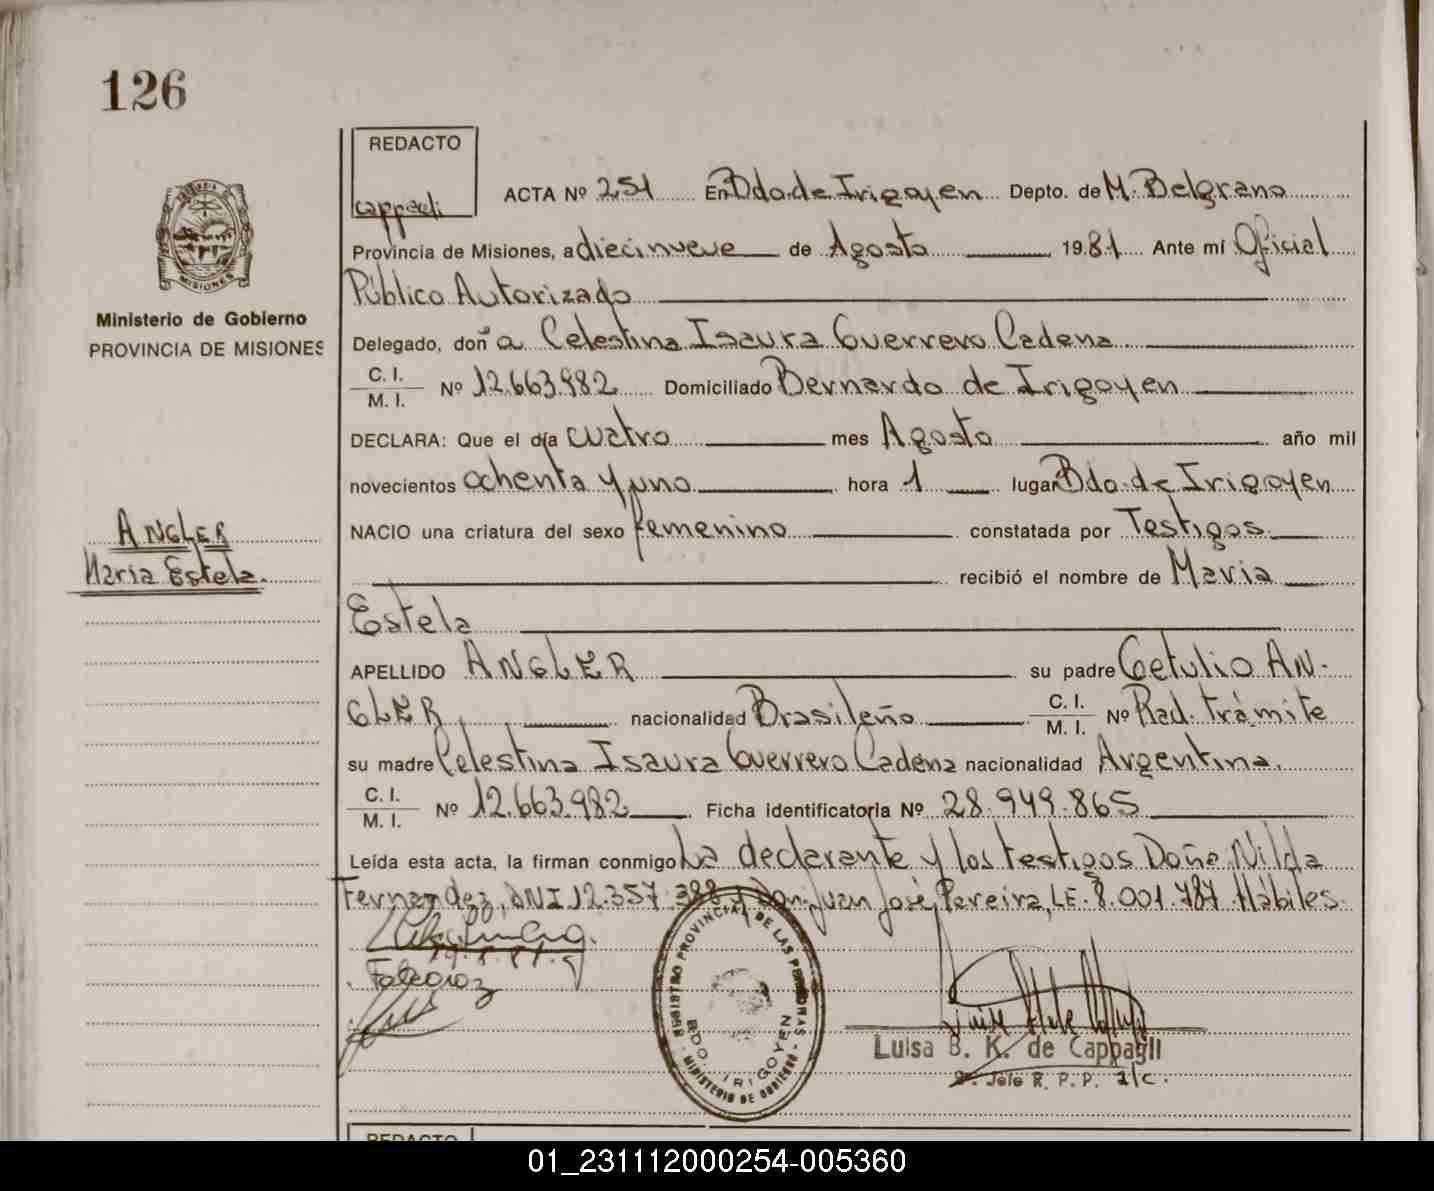 126
REDACTO
cappagli
ACTA Nº 251 En Bdo. de Irigoyen Depto. de M. Belgrano
Provincia de Misiones, a diecinueve de Agosto 1981 Ante mí Oficial
Público Autorizado
Delegado, doña Celestina Isaura Guerrero Cadena
C. I.
M. I.
Nº 12.663.982 Domiciliado Bernardo de Irigoyen
DECLARA: Que el día cuatro mes Agosto año mil
novecientos ochenta y uno hora 1 lugar Bdo. de Irigoyen
NACIO una criatura del sexo femenino constatada por Testigos
recibió el nombre de Maria
Estela
APELLIDO ANGLER su padre Getulio AN-
GLER, nacionalidad Brasileño C. I. M. I. Nº Rad. trámite
su madre Celestina Isaura Guerrero Cadena nacionalidad Argentina.
C. I.
M. I.
Nº 12.663.982 Ficha identificatoria Nº 28.949.865
Leída esta acta, la firman conmigo La declarante y los testigos Doña Nilda
Fernandez, DNI 12.357.388 y Don Juan José Pereira, LE. 8.001.787 Hábiles.
MISIONES
Ministerio de Gobierno
PROVINCIA DE MISIONES
ANGLER
Maria Estela.
REGISTRO PROVINCIAL DE LAS PERSONAS - MINISTERIO DE GOBIERNO -
BDO. IRIGOYEN
Luisa B. K. de Cappagli
Jefe R. P. P. a/c.
REDACTO
01_231112000254-005360